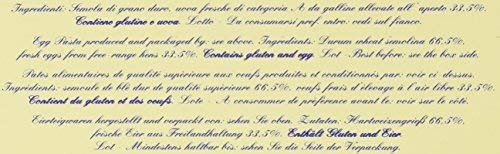 Ingredienti: Semola di grano duro, uova fresche di categoria A da galline allevate all' aperto 33.5%.
Contiene glutine e uova. Lotto - Da consumarsi pref. entro: vedi sul fianco.
Egg Pasta produced and packaged by: see above. Ingredients: Durum wheat semolina 66.5%,
fresh eggs from free-range hens 33.5%. Contains gluten and egg. Lot - Best before: see the box side.
Pates alimentaires de qualité supérieure aux oeufs produites et conditionnés par: voir ci-dessus.
Ingrédients: semoule de blé dur de qualité supérieure 66.5%, oeufs frais d'élevage à l'air libre 33.5%.
Contient du gluten et des oeufs. Lote - A consommer de préférence avant le: voir sur le côté.
Eierteigwaren hergestellt und verpackt von: sehen Sie oben. Zutaten: Hartweizengrieß 66.5%,
frische Eier aus Freilandhaltung 33.5%. Enthält Gluten und Eier.
Lot - Mindestens haltbar bis: sehen Sie die Seite der Verpackung.